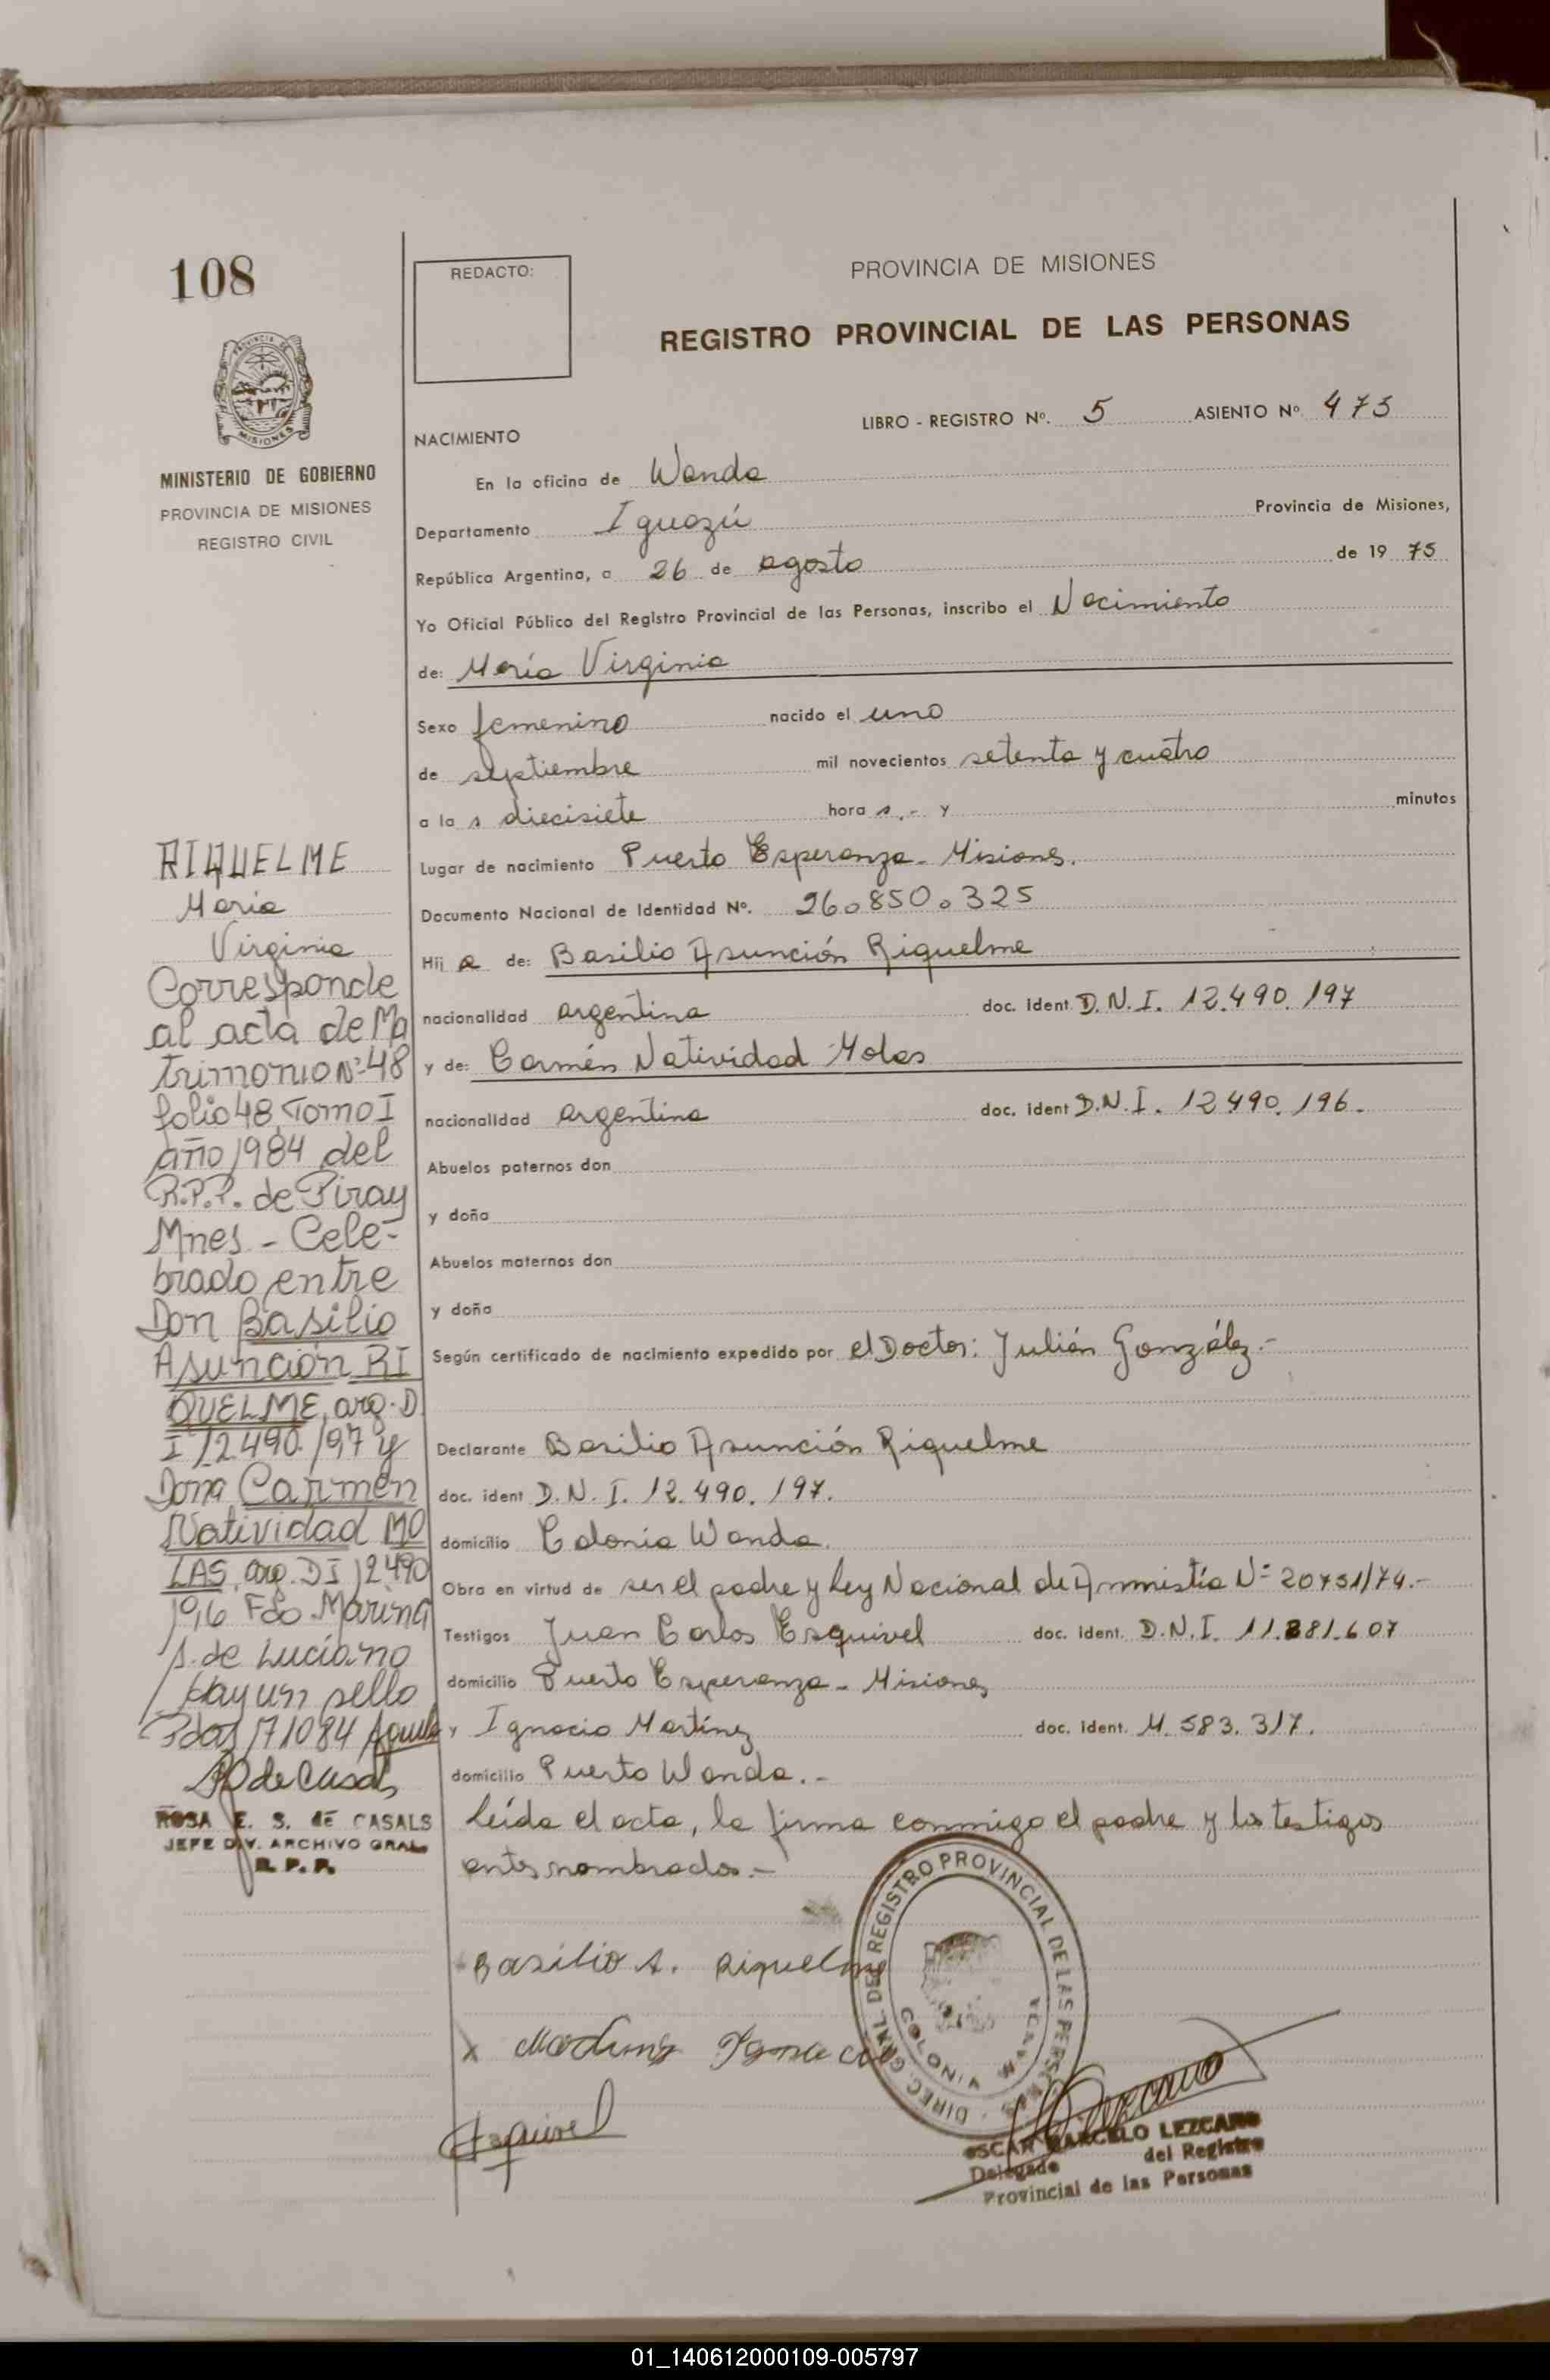 108
PROVINCIA DE
MISIONES
MINISTERIO DE GOBIERNO
PROVINCIA DE MISIONES
REGISTRO CIVIL
REDACTO:
PROVINCIA DE MISIONES
REGISTRO PROVINCIAL DE LAS PERSONAS
LIBRO - REGISTRO Nº. 5 ASIENTO Nº 473
NACIMIENTO
En la oficina de Wanda
Departamento Iguazú Provincia de Misiones,
República Argentina, a 26 de agosto de 19 75
Yo Oficial Público del Registro Provincial de las Personas, inscribo el Nacimiento
de: María Virginia
Sexo femenino nacido el uno
de septiembre mil novecientos setenta y cuatro
a la s diecisiete hora s.- y minutos
Lugar de nacimiento Puerto Esperanza - Misiones.
Documento Nacional de Identidad Nº. 26.850.325
Hij a de: Basilio Asunción Riquelme
nacionalidad argentina doc. ident. D.N.I. 12.490.197
y de: Carmén Natividad Molas
nacionalidad argentina doc. ident D.N.I. 12490.196.
Abuelos paternos don
y doña
Abuelos maternos don
y doña
Según certificado de nacimiento expedido por el Doctor: Julián González.-
Declarante Basilio Asunción Riquelme
doc. ident D.N.I. 12.490.197.
domicilio Colonia Wanda.
Obra en virtud de ser el padre y ley Nacional de Ammistía Nº 20751/74.-
Testigos Juan Carlos Esquivel doc. ident. D.N.I. 11.881.607
domicilio Puerto Esperanza - Misiones
y Ignacio Martínez doc. ident. M. 583.317.
domicilio Puerto Wanda.-
Leída el acta, la firma conmigo el padre y los testigos
antes nombrados.-
RIQUELME
María
Virginia
Corresponde
al acta de Ma
trimonio Nº 48
folio 48, Tomo I
año 1984 del
R.P.P. de Piray
Mnes - Cele-
brado entre
Don Basilio
Asunción RI
QUELME, arg. D.
I 12.490.197 y
Dona Carmen
Natividad MO
LAS, arg. DI 12490
196 Fdo. Marina
S. de Luciano
Hay un sello
Pdas 171084
de Casals
ROSA E. S. de CASALS
JEFE DIV. ARCHIVO GRAL
R. P. P.
Basilio A. Riquelme
x Martinez Ignacio
Esquivel
DIREC. GRAL. DEL REGISTRO PROVINCIAL DE LAS PERSONAS
COLONIA WANDA
Lezcano
OSCAR MARCELO LEZCANO
Delegado del Registro
Provincial de las Personas
01_140612000109-005797